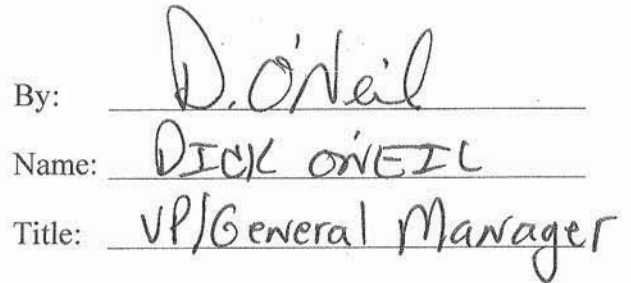 By: D. O'Neil
Name: DICK O'NEIL
Title: VP/General Manager